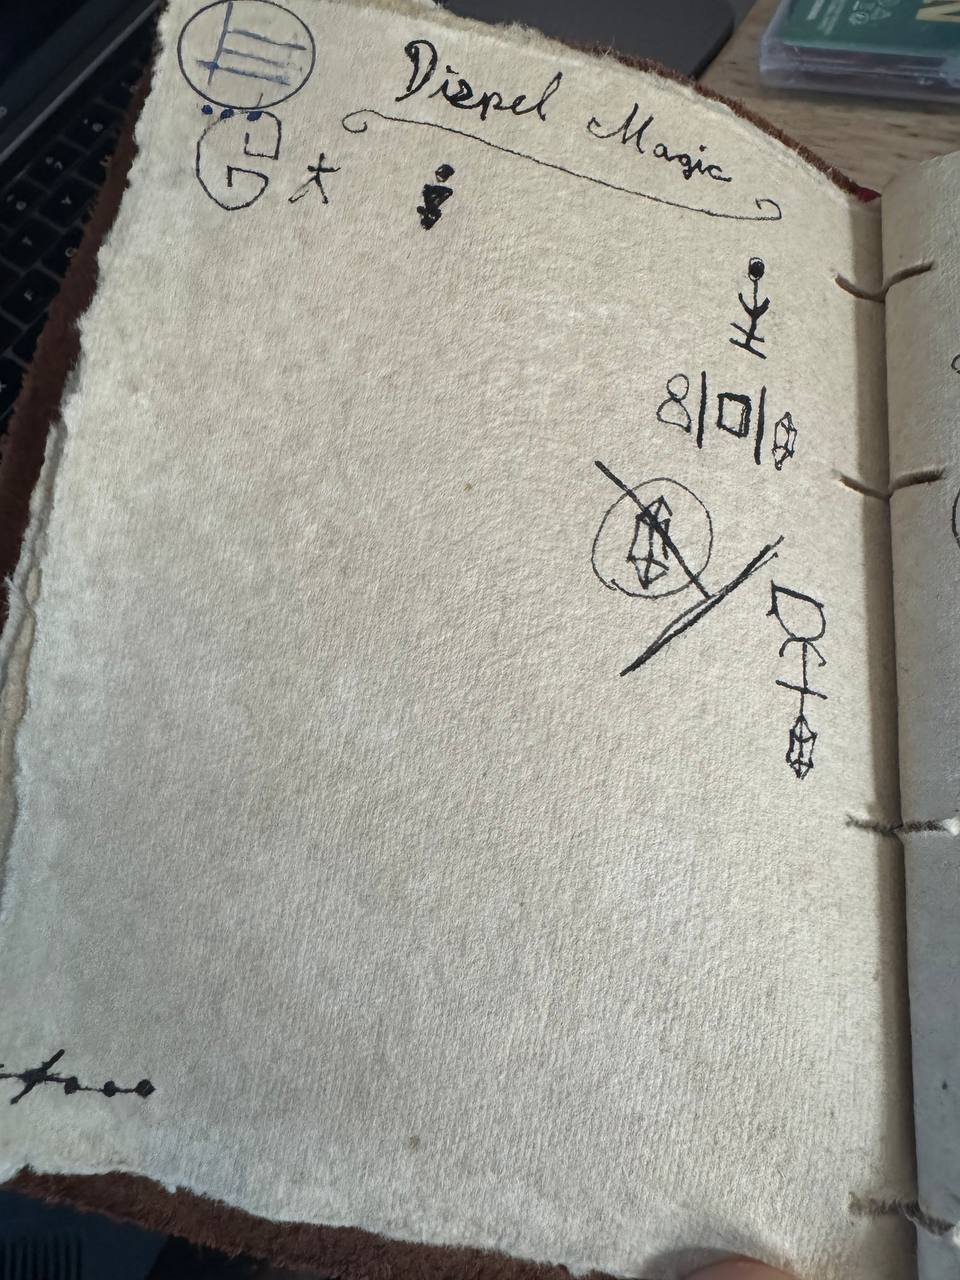 Dispel Magic